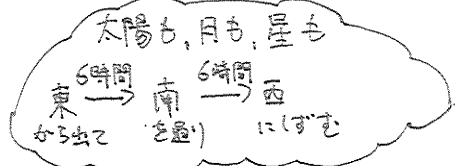 太陽も,月も,星も
6時間 6時間
東 → 南 → 西
から出て を通り にしずむ